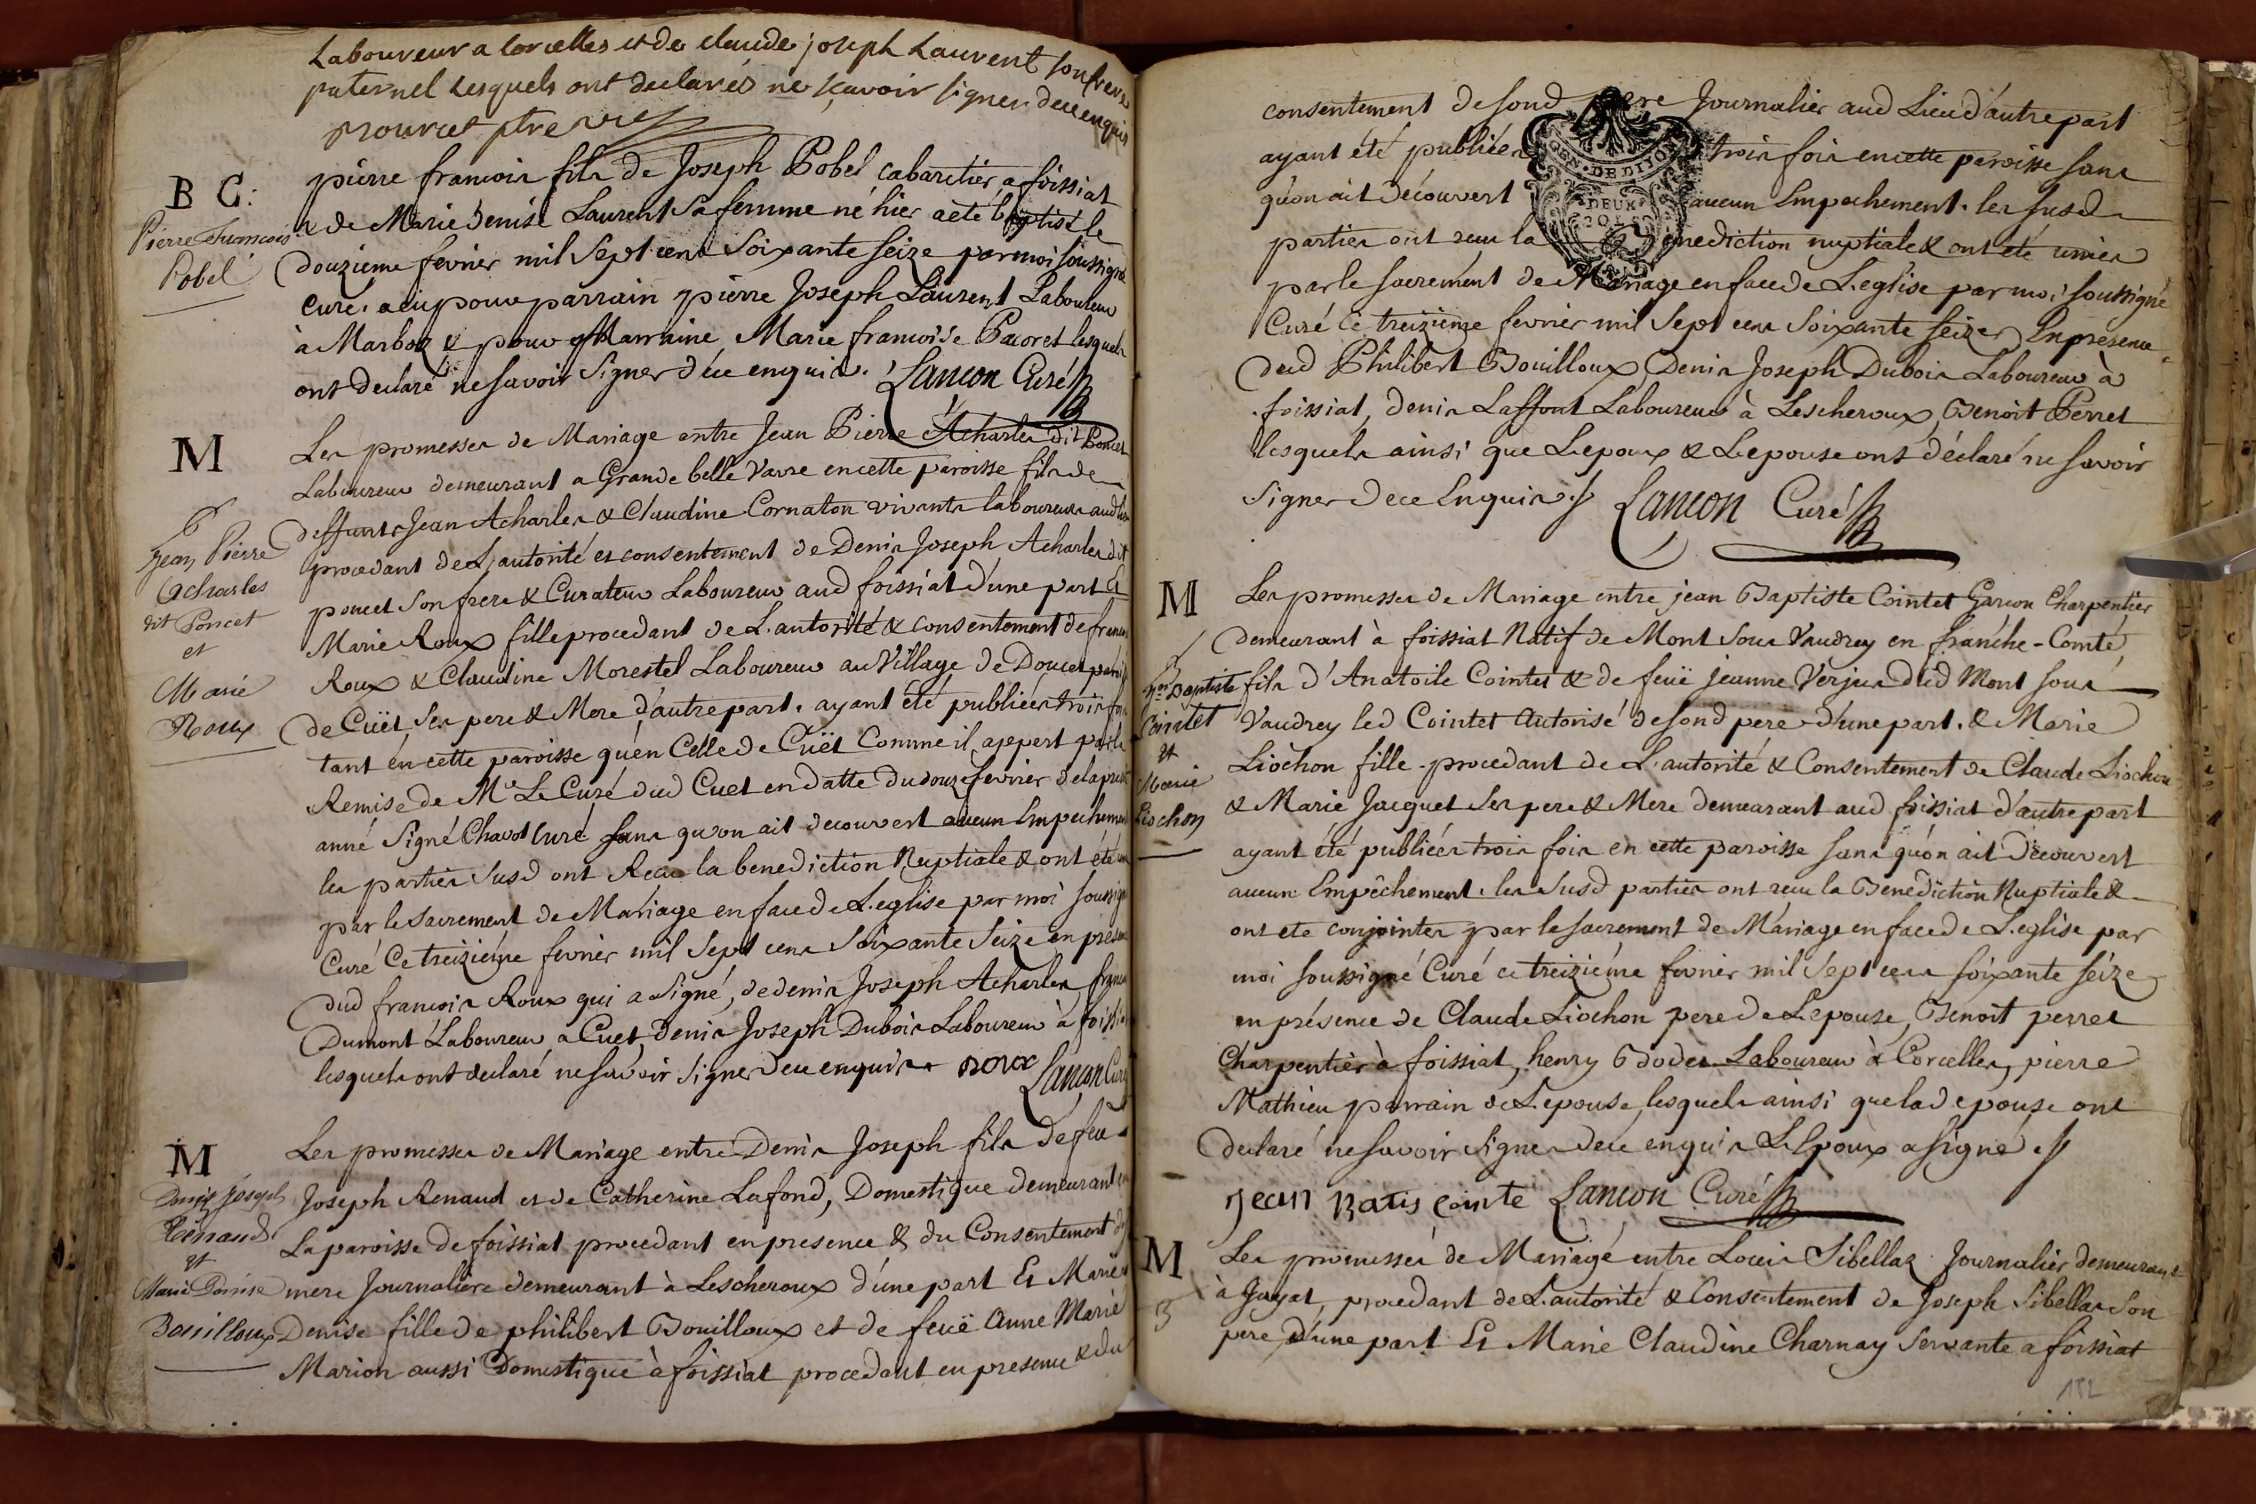 Laboureur a Corcelles et de claude joseph Laurent son frere
paternel Lesquels ont declarés ne sçavoir signer de ce enquis
B C:
Pierre François
Pobel
pierre francois fils de Joseph Pobel cabaretier a foissiat
& de Marie Denise Laurent sa femme né hier a eté baptisé le
douzieme fevrier mil sept cens soixante seize par moi soussigné
curé. a eu pour parrain pierre Joseph Laurent Laboureur
à Marboz & pour Marraine Marie francoise Pacoret lesquels
ont declaré ne savoir signer de ce enquis. Lançon Curé
M
6
Jean Pierre
Acharles
dit Poncet
et
Marie
Roux
Les promesses de Mariage entre Jean Pierre Acharles dit Poncet
Laboureur demeurant a Grande belle Vavre en cette paroisse fils de
deffunts Jean Acharles & Claudine Cornaton vivants laboureurs aud lieu
procedant de L'autorité et consentement de Denis Joseph Acharles dit
poncet son frere & Curateur Laboureur aud foissiat d'une part Et
Marie Roux fille procedant de L'autorité & consentement de francois
Roux & Claudine Morestel Laboureur au Village de Doucet paroisse
de Cuët ses pere & Mere d'autre part. ayant été publiées trois fois
tant en cette paroisse qu'en Celle de Cuët Comme il appert par la
Remise de Mr Le Curé dud Cuet en datte du douze fevrier de la presente
anné signé Chavot Curé sans qu'on ait decouvert aucun Empechement
les parties susd ont Recu la benediction Nuptiale & ont été unis
par le sacrement de Mariage en face de L'eglise par moi soussigné
Curé Ce treizième fevrier mil sept cens soixante seize en presence
dud francois Roux qui a signé, de denis Joseph Acharles francois
Dumont Laboureur a Cuet, Denis Joseph Dubois Laboureur à foissiat
lesquels ont declaré ne savoir signer de ce enquis roux Lançon Curé
M
Denis Joseph
Renaud
et
Marie Denise
Bouilloux
Les promesses de Mariage entre Denis Joseph fils de feu
Joseph Renaud et de Catherine Lafond, Domestique demeurant en
La paroisse de foissiat procedant en presence & du Consentement de sa
mere Journaliere demeurant à Lescheroux d'une part Et Marie
Denise fille de philibert Bouilloux et de feuë Anne Marie
Marion aussi Domestique à foissiat procedant en presence & du
consentement de sond pere Journalier aud Lieu d'autre part
ayant été publiées trois fois en cette paroisse sans
qu'on ait découvert aucun Empechement. les susd
parties ont recu la benediction nuptiale & ont été unies
par le sacrement de Mariage en face de L'eglise par moi soussigné
Curé ce treizieme fevrier mil sept cens soixante seize En presence
dud Philibert Bouilloux, Denis Joseph Dubois Laboureur à
foissiat, denis Laffont Laboureur à Lescheroux, Benoit Perret
lesquels ainsi que L'epoux & L'epouse ont déclaré ne savoir
signer de ce Enquis. Lançon Curé
GEN. DE DIJON
DEUX
SOLS
M
Jean Baptiste
Cointet
et
Marie
Liochon
Les promesses de Mariage entre jean Baptiste Cointet Garcon Charpentier
demeurant à foissiat Natif de Mont sous Vaudrey en franche-Comté
fils d'Anatoile Cointet & de feuë jeanne Verjus dud Mont sous
Vaudrey led Cointet Autorisé de sond pere d'une part. & Marie
Liochon fille procedant de L'autorité & Consentement de Claude Liochon
& Marie Jacquet ses pere & Mere demeurant aud foissiat d'autre part
ayant été publiées trois fois en cette paroisse sans qu'on ait decouvert
aucun Empêchement. les susd parties ont recu la Benediction Nuptiale &
ont eté conjointes par le sacrement de Mariage en face de L'eglise par
moi soussigné Curé ce treizième fevrier mil sept cens soixante seize
en présence de Claude Liochon pere de L'epouse, Benoit perret
Charpentier à foissiat, henry Bodet Laboureur à Corcelles, pierre
Mathieu parrain de L'epouse, lesquels ainsi que lad epouse ont
declaré ne savoir signer de ce enquis L'Epoux a signé
jean Batis cointe Lançon Curé
M
Les promesses de Mariage entre Louis Sibellas Journalier demeurant
à Jayat, procedant de L'autorité & Consentement de Joseph Sibellas son
pere d'une part Et Marie Claudine Charnay Servante a foissiat
182